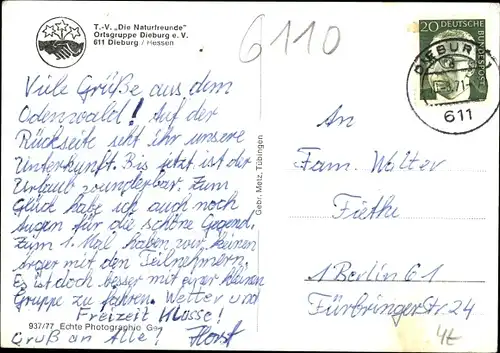 T.-V. „Die Naturfreunde"
Ortsgruppe Dieburg e. V.
611 Dieburg / Hessen
6110
20 DEUTSCHE
BUNDESPOST
DIEBURG 1
71-
611
Viele Grüße aus dem
Odenwald! Auf der
Rückseite seht ihr unsere
Unterkunft. Bis jetzt ist der
Urlaub wunderbar. Zum
Glück habe ich auch noch
Augen für die schöne Gegend.
Zum 1. Mal haben wir keinen
Ärger mit den Teilnehmern.
Es ist doch besser mit einer kleinen
Gruppe zu fahren. Wetter und
Freizeit Klasse!
Gruß an Alle! Horst
937/77 Echte Photographie Ge
Gebr. Metz, Tübingen
An
Fam. Walter
Fiethe
1 Berlin 61
Fürbringer Str. 24